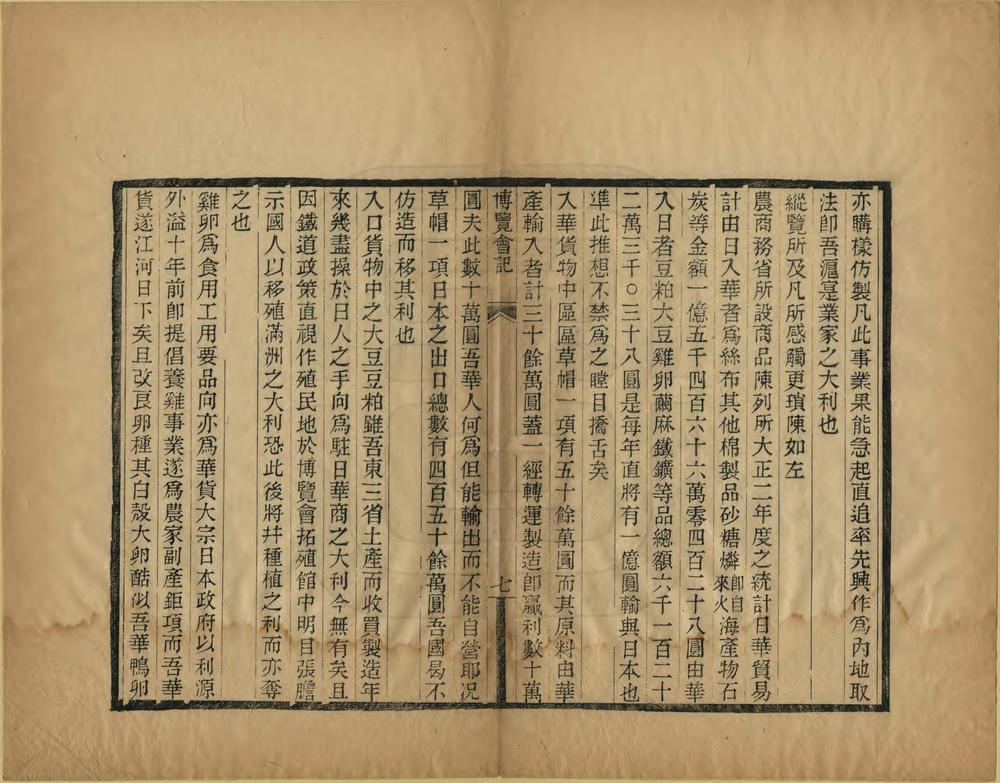 亦購樣仿製凡此事業果能急起直追率先興作爲內地取
法卽吾滬寔業家之大利也
縱覽所及凡所感觸更瑣陳如左
農商務省所設商品陳列所大正二年度之統計日華貿易
計由日入華者爲絲布其他棉製品砂糖燐卽自來火海產物石
炭等金額一億五千四百六十六萬零四百二十八圓由華
入日者豆粕大豆雞卵繭麻鐵鑛等品總額六千一百二十
二萬三千〇三十八圓是每年直將有一億圓輸與日本也
準此推想不禁爲之瞠目撟舌矣
入華貨物中區區草帽一項有五十餘萬圓而其原料由華
產輸入者計三十餘萬圓蓋一經轉運製造卽贏利數十萬
博覽會記
七
圓夫此數十萬圓吾華人何爲但能輸出而不能自營耶况
草帽一項日本之出口總數有四百五十餘萬圓吾國曷不
仿造而移其利也
入口貨物中之大豆豆粕雖吾東三省土產而收買製造年
來幾盡操於日人之手向爲駐日華商之大利今無有矣且
因鐵道政策直視作殖民地於博覽會拓殖館中明目張膽
示國人以移殖滿洲之大利恐此後將幷種植之利而亦奪
之也
雞卵爲食用工用要品向亦爲華貨大宗日本政府以利源
外溢十年前卽提倡養雞事業遂爲農家副產鉅項而吾華
貨遂江河日下矣且改良卵種其白殼大卵酷似吾華鴨卵